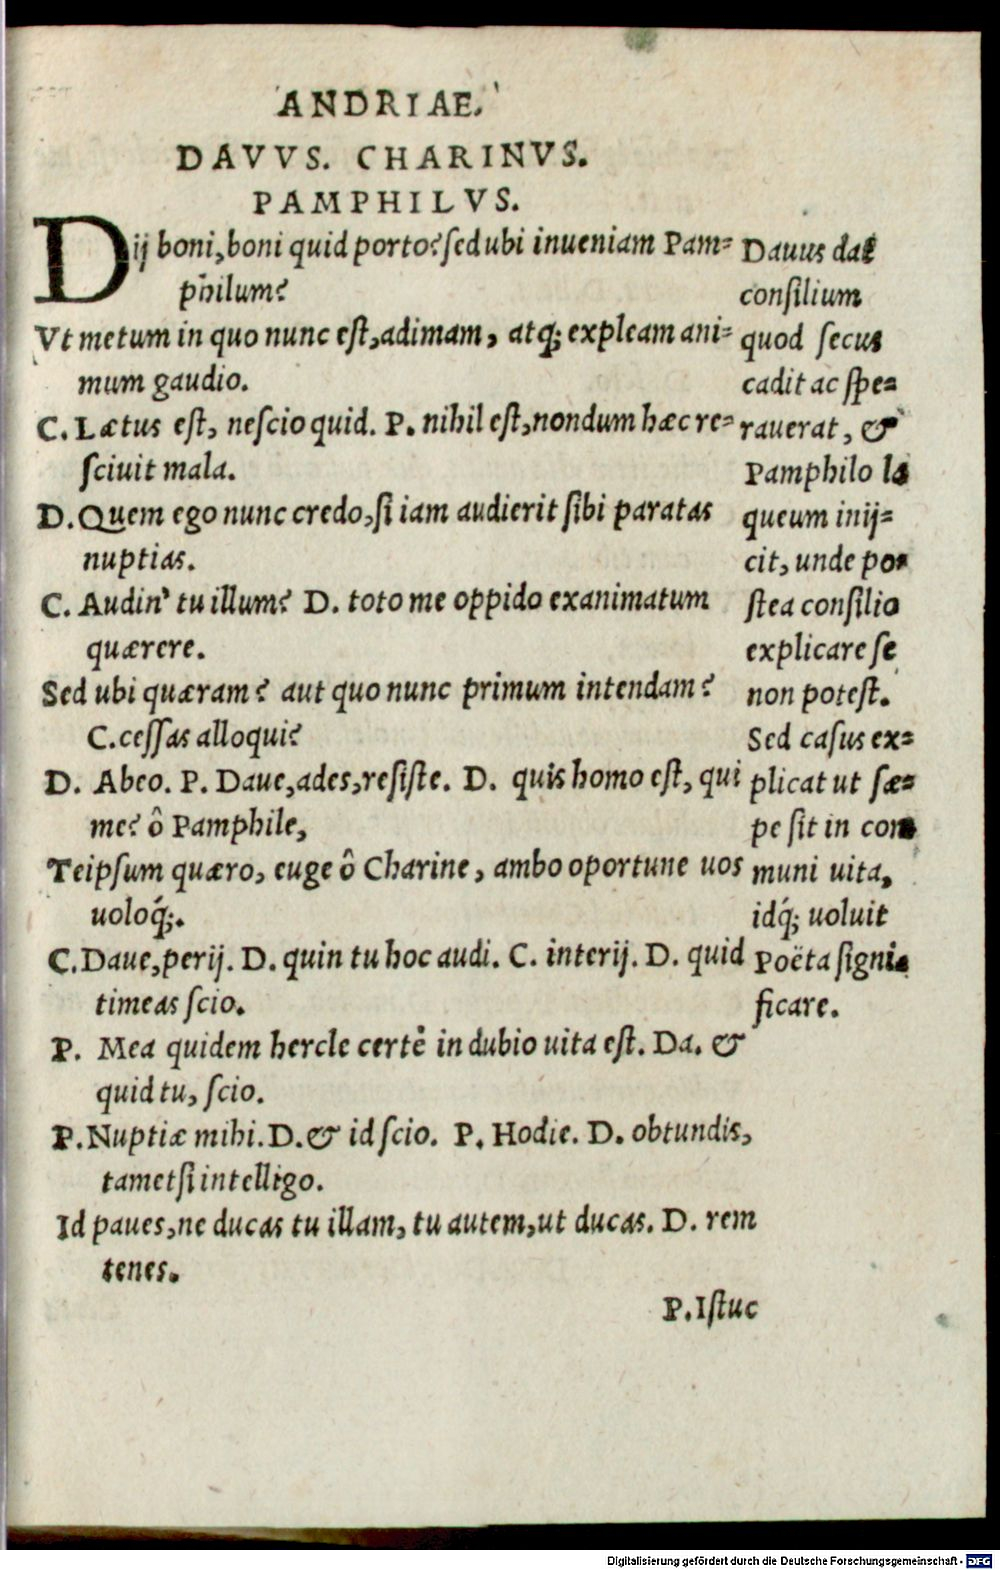 ANDRIAE.
DAVVS. CHARINVS.
PAMPHILVS.
Dij boni, boni quid porto? sed ubi inueniam Pam-
philum?
Vt metum in quo nunc est, adimam, atq; expleam ani-
mum gaudio.
C. Lætus est, nescio quid. P. nihil est, nondum hæc re-
sciuit mala.
D. Quem ego nunc credo, si iam audierit sibi paratas
nuptias.
C. Audin' tu illum? D. toto me oppido exanimatum
quærere.
Sed ubi quæram? aut quo nunc primum intendam?
C. cessas alloqui?
D. Abeo. P. Daue, ades, resiste. D. quis homo est, qui
me? ô Pamphile,
Teipsum quæro, euge ô Charine, ambo oportune uos
uoloq́;.
C. Daue, perij. D. quin tu hoc audi. C. interij. D. quid
timeas scio.
P. Mea quidem hercle certè in dubio uita est. Da. &
quid tu, scio.
P. Nuptiæ mihi. D. & id scio. P. Hodie. D. obtundis,
tametsi intelligo.
Id paues, ne ducas tu illam, tu autem, ut ducas. D. rem
tenes.
P. Istuc
Dauus dat
consilium
quod secus
cadit ac spe-
rauerat, &
Pamphilo la
queum inij-
cit, unde po-
stea consilio
explicare se
non potest.
Sed casus ex-
plicat ut sæ-
pe sit in com
muni uita,
idq́; uoluit
Poëta signi-
ficare.
Digitalisierung gefördert durch die Deutsche Forschungsgemeinschaft - DFG